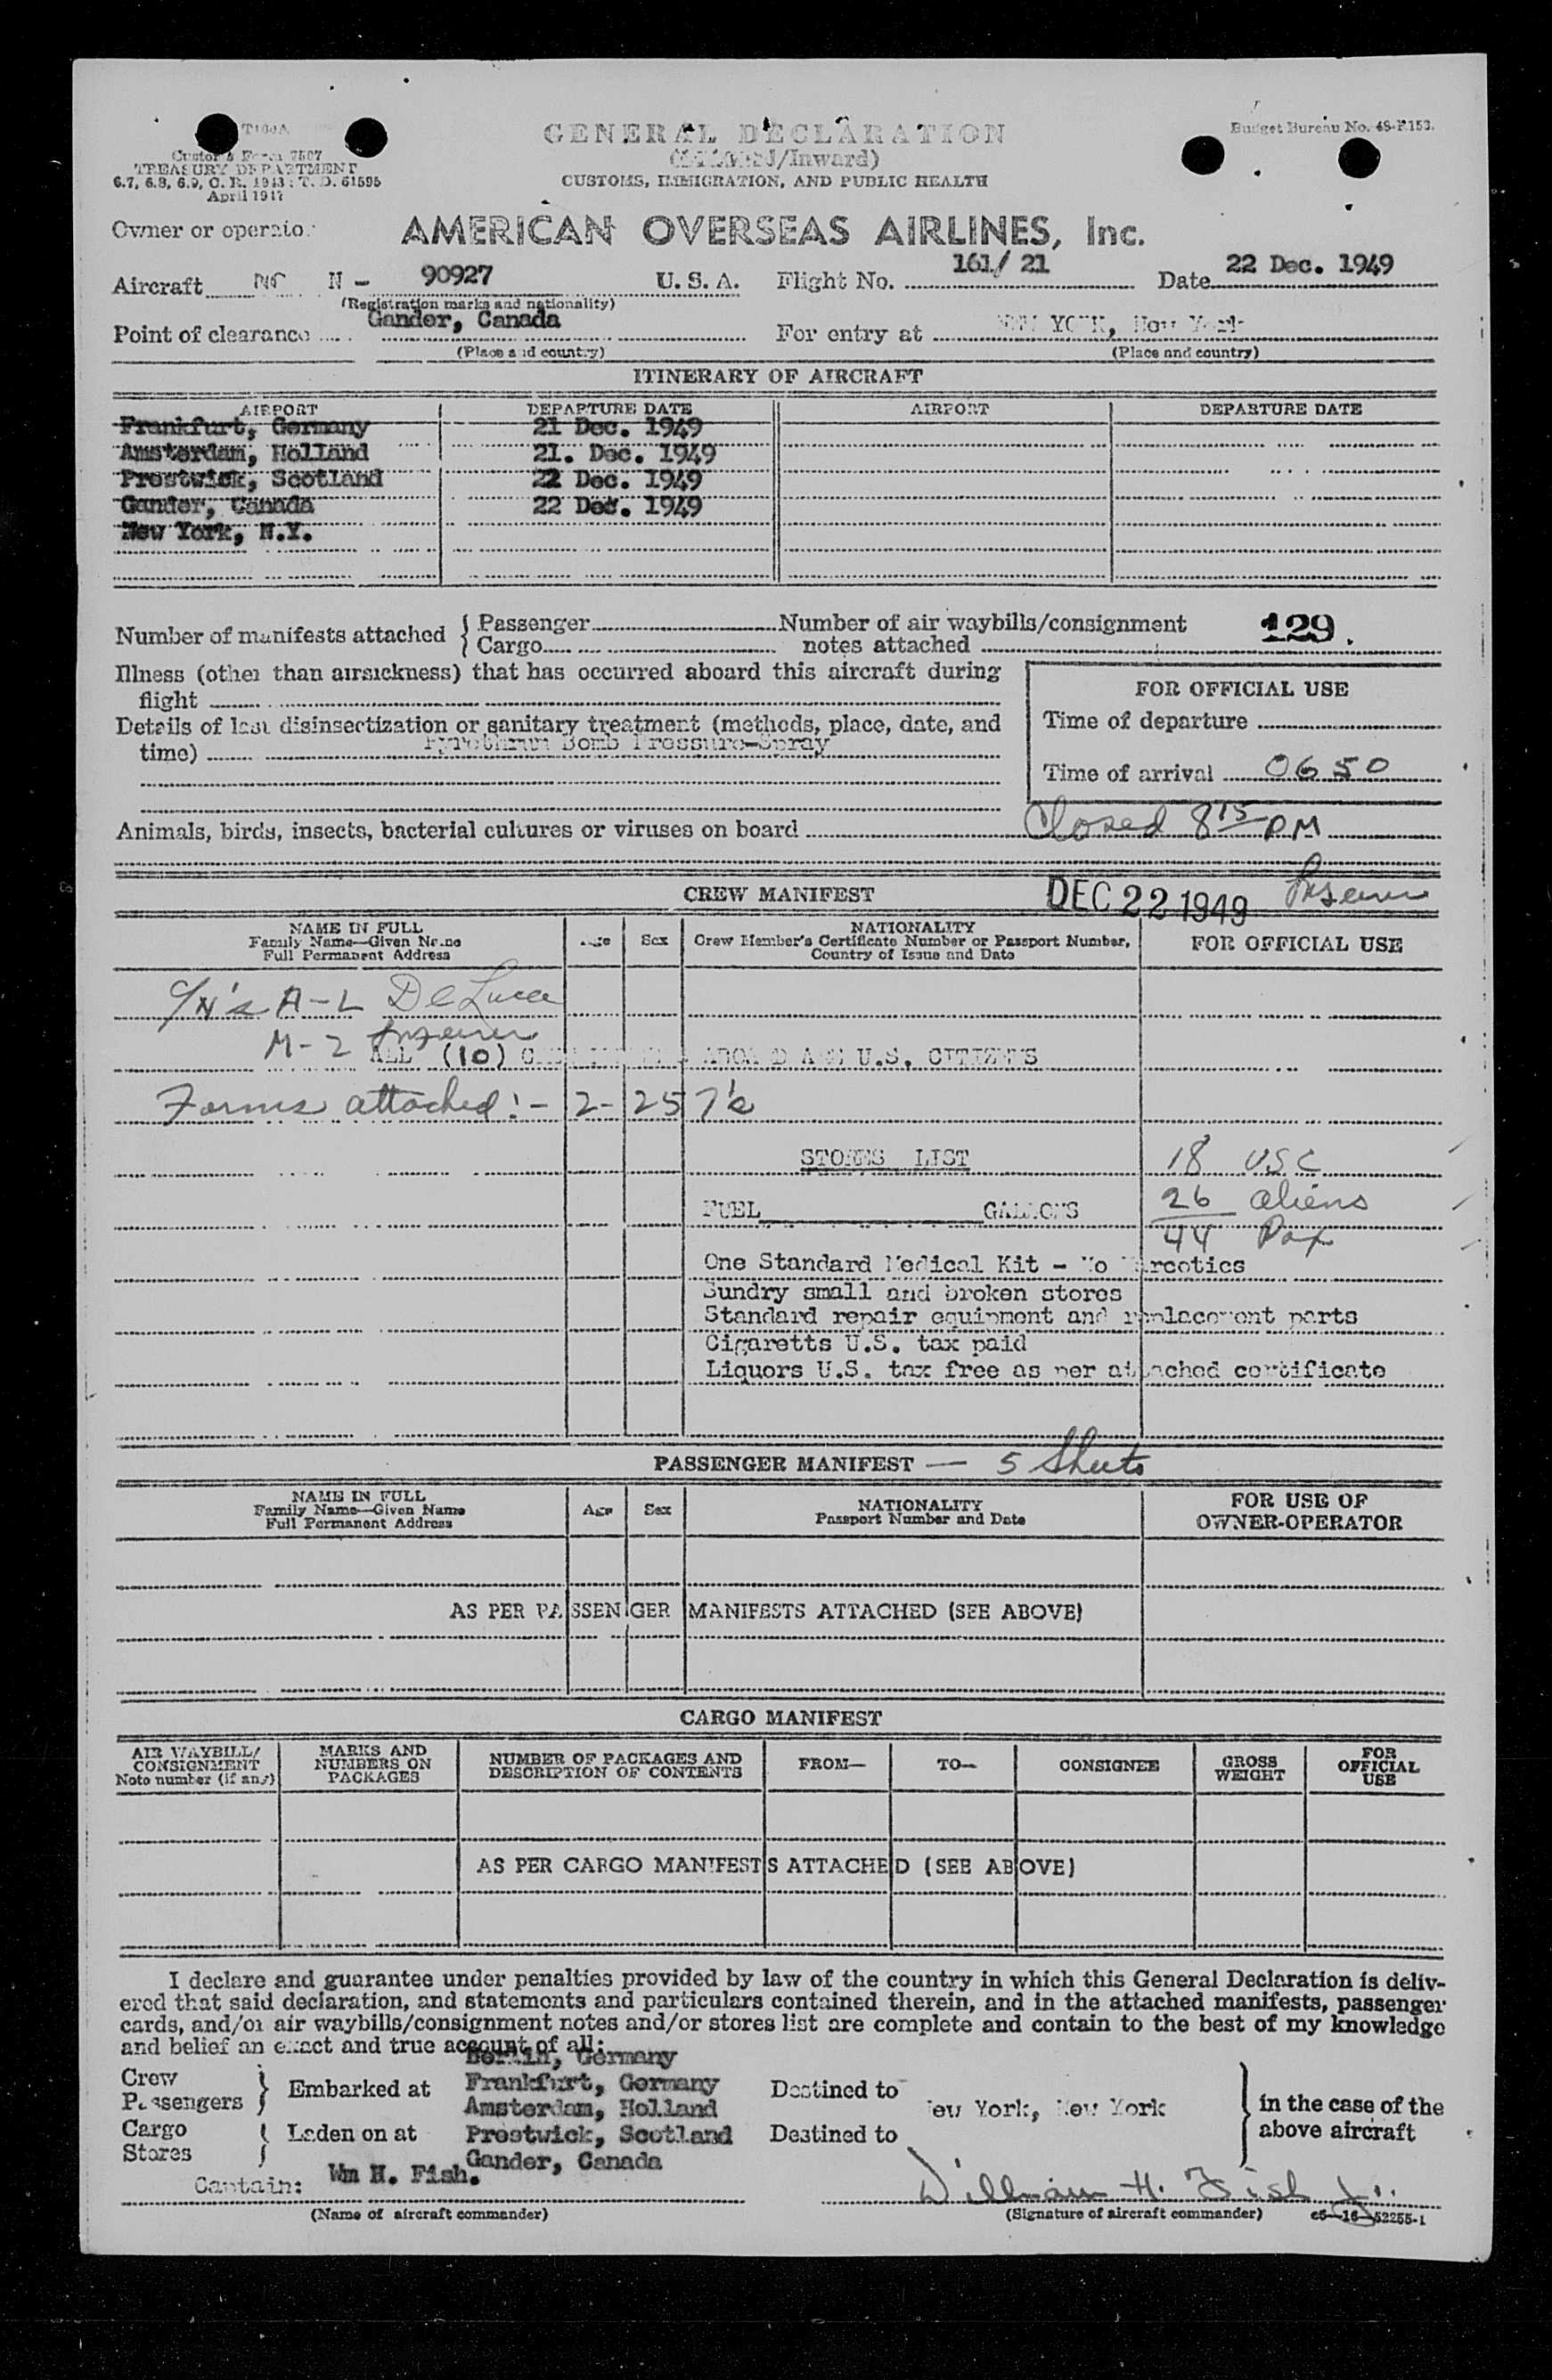 GENERAL DECLARATION
Budget Bureau No. 48-R153.
Customs Form 7507
(Outward/Inward)
TREASURY DEPARTMENT
6.7, 6.8, 6.9, C. R. 1943; T. D. 51595
CUSTOMS, IMMIGRATION, AND PUBLIC HEALTH
April 1947
Owner or operator AMERICAN OVERSEAS AIRLINES, Inc.
Aircraft NC N - 90927 U. S. A. Flight No. 161/ 21 Date 22 Dec. 1949
(Registration marks and nationality)
Point of clearance Gander, Canada For entry at NEW YORK, New York
(Place and country) (Place and country)
ITINERARY OF AIRCRAFT
AIRPORT DEPARTURE DATE AIRPORT DEPARTURE DATE
Frankfurt, Germany 21 Dec. 1949
Amsterdam, Holland 21. Dec. 1949
Prestwick, Scotland 22 Dec. 1949
Gander, Canada 22 Dec. 1949
New York, N.Y.
Number of manifests attached { Passenger Number of air waybills/consignment 129.
Cargo notes attached
Illness (other than airsickness) that has occurred aboard this aircraft during
flight
FOR OFFICIAL USE
Details of last disinsectization or sanitary treatment (methods, place, date, and
Time of departure
time) Pyrethrum Bomb Pressure-Spray
Time of arrival 0650
Animals, birds, insects, bacterial cultures or viruses on board Closed 8 15 PM
CREW MANIFEST DEC 22 1949
NAME IN FULL
Family Name—Given Name
Full Permanent Address
Age Sex
NATIONALITY
Crew Member's Certificate Number or Passport Number,
Country of Issue and Date
FOR OFFICIAL USE
A-L De Luca
M-2
ALL (10) ABOARD ARE U.S. CITIZENS
Forms attached:- 2- 257's
STORES LIST 18 USC
FUEL GALLONS 26 aliens
44 Pax
One Standard Medical Kit - No Narcotics
Sundry small and broken stores
Standard repair equipment and replacement parts
Cigaretts U.S. tax paid
Liquors U.S. tax free as per attached certificate
PASSENGER MANIFEST — 5 Sheets
NAME IN FULL
Family Name—Given Name
Full Permanent Address
Age Sex
NATIONALITY
Passport Number and Date
FOR USE OF
OWNER-OPERATOR
AS PER PASSENGER MANIFESTS ATTACHED (SEE ABOVE)
CARGO MANIFEST
AIR WAYBILL/
CONSIGNMENT
Note number (if any)
MARKS AND
NUMBERS ON
PACKAGES
NUMBER OF PACKAGES AND
DESCRIPTION OF CONTENTS
FROM— TO— CONSIGNEE
GROSS
WEIGHT
FOR
OFFICIAL
USE
AS PER CARGO MANIFESTS ATTACHED (SEE ABOVE)
I declare and guarantee under penalties provided by law of the country in which this General Declaration is deliv-
ered that said declaration, and statements and particulars contained therein, and in the attached manifests, passenger
cards, and/or air waybills/consignment notes and/or stores list are complete and contain to the best of my knowledge
and belief an exact and true account of all:
Berlin, Germany
Crew
Passengers } Embarked at Frankfurt, Germany Destined to
Amsterdam, Holland New York, New York } in the case of the
Cargo
Stores } Laden on at Prestwick, Scotland Destined to above aircraft
Gander, Canada
Captain: Wm H. Fish. William H. Fish Jr.
(Name of aircraft commander) (Signature of aircraft commander) c5—16—52255-1